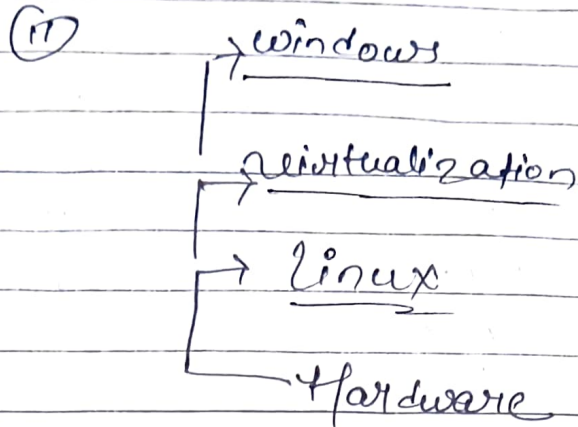 (ii)
→ windows
→ virtualization
→ Linux
Hardware